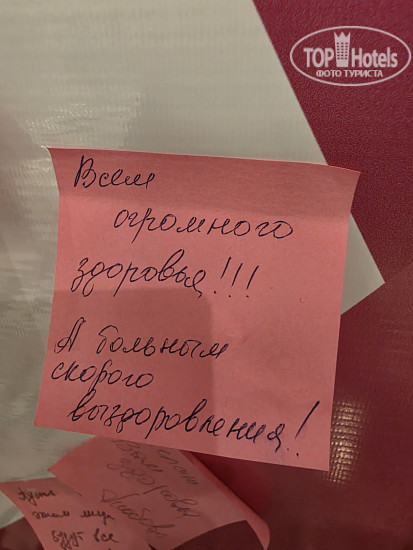 TOP Hotels
ФОТО ТУРИСТА
Всем
огромного
здоровья!!!
А больным
скорого
выздоровления!
здоровья
Любовь
этом мире
будут все